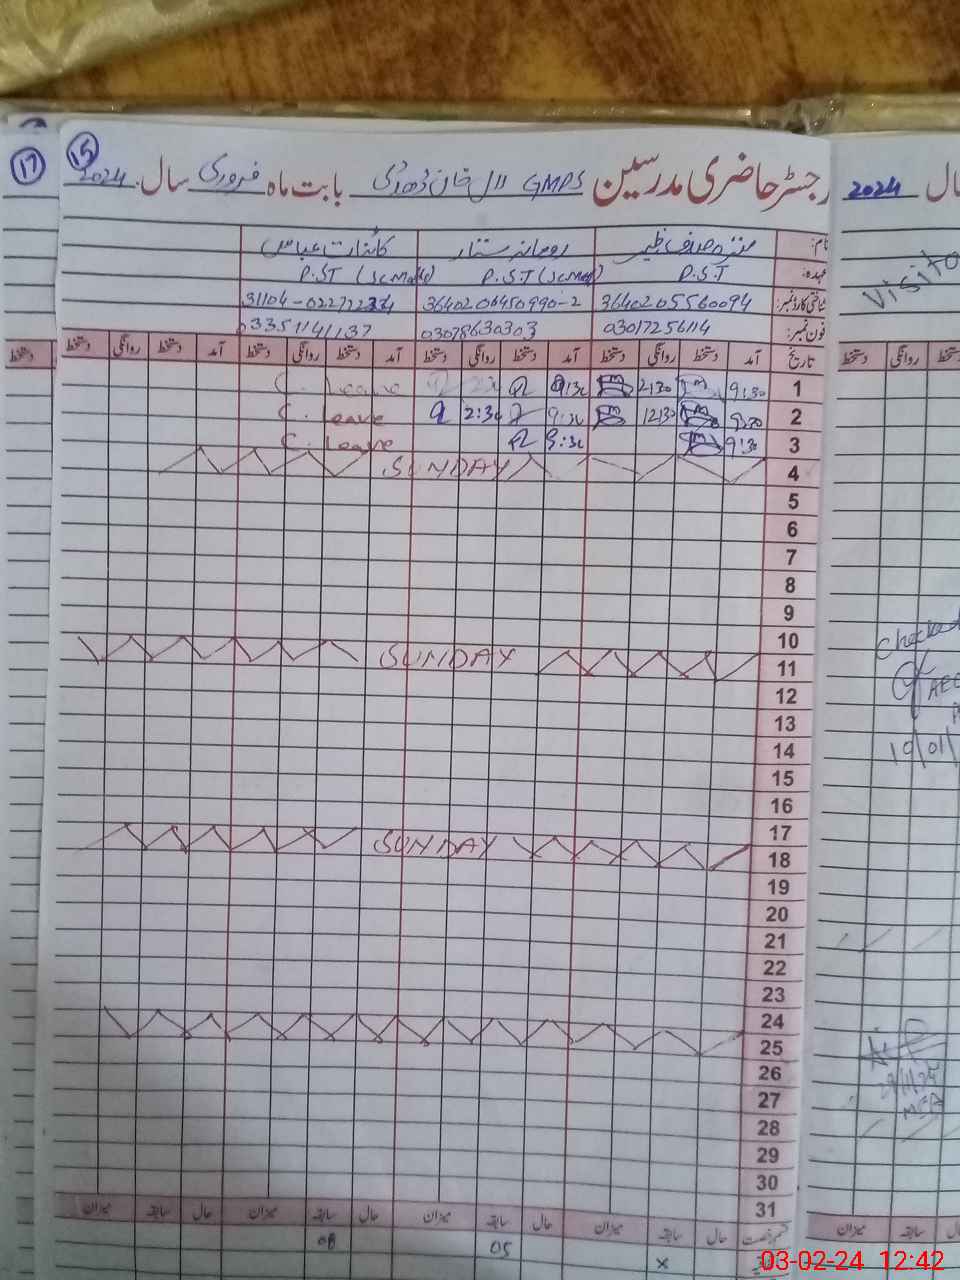 15
17
رجسٹر حاضری مدرسین GMPS لال خان بابت ماہ فروری سال 2024
سال 2024
نام: رومانہ ستار کائنات عباس
عہدہ: P.S.T P.S.T (Sc.Math) P.ST (Sc.Math)
شناختی کارڈ نمبر: 3640205560094 3640206450990-2
فون نمبر: 03017256114 03078630303 03351141137
Visito
تاریخ آمد دستخط روانگی دستخط آمد دستخط روانگی دستخط آمد دستخط روانگی دستخط آمد دستخط روانگی دستخط دستخط
دستخط روانگی دستخط
1 9:30 2:30 9:30 C. Leave
2 12:30 9:30 2:30 C. Leave
3 9:30 9:30 C. Leave
4 SUNDAY
5
6
7
8
9
10
11 SUNDAY
12
13
14
15
16
17
18 SUNDAY
19
20
21
22
23
24
25
26
27
28
29
30
31
Checked
AEO
19/01/
حال سابقہ میزان حال سابقہ میزان حال سابقہ میزان حال سابقہ میزان
سابقہ میزان
x 05 08
03-02-24 12:42